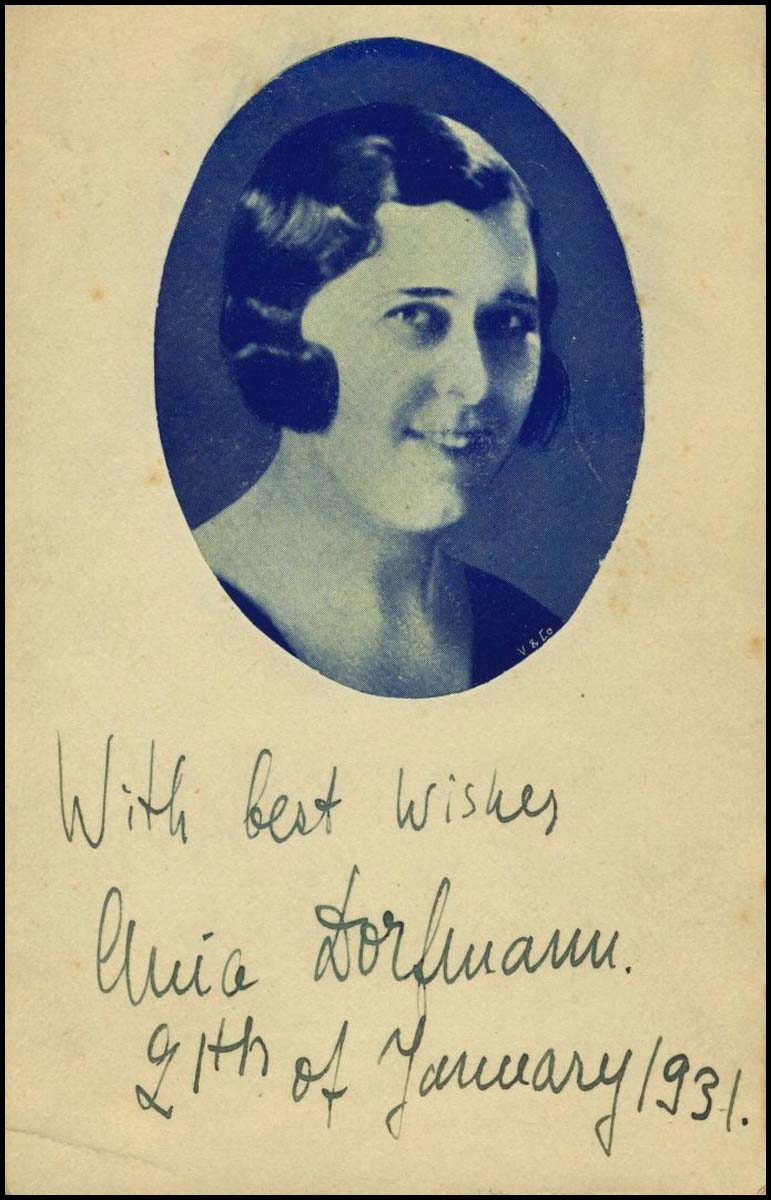 V & Co
With best wishes
Ania Dorfmann.
21th of January 1931.